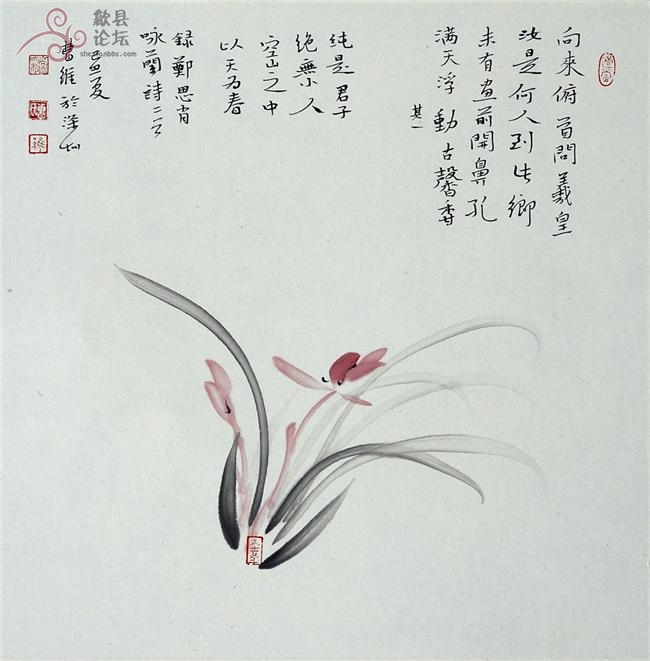 向來俯首問羲皇
汝是何人到此鄉
未有画前開鼻孔
满天浮動古馨香
其一
纯是君子
绝無小人
空山之中
以天为春
録鄭思肖
咏蘭詩二首
夏
曹維於深圳
歙县
论坛